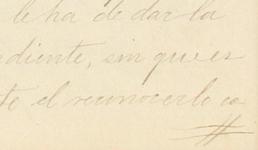 le ha de dar la
diente, sin que es
te el reconocerlo co